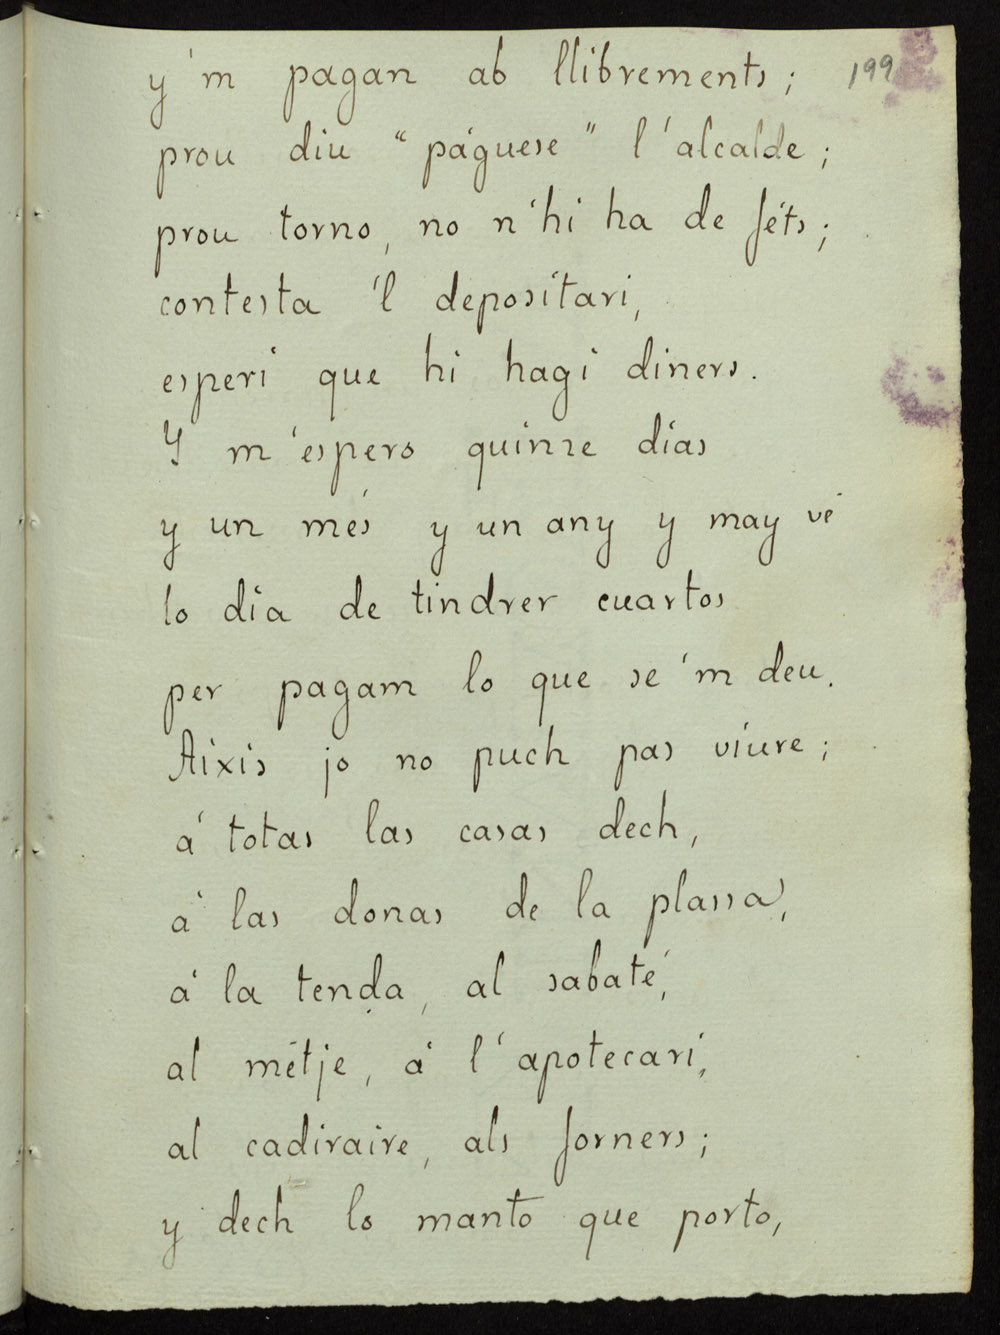 199
y 'm pagan ab llibrements;
prou diu "páguese" l'alcalde;
prou torno, no n'hi ha de féts;
contesta 'l depositari,
esperi que hi hagi diners.
Y m'espero quinze días
y un més y un any y may vé
lo día de tindrer cuartos
per pagam lo que se'm deu.
Aixis jo no puch pas viure;
á totas las casas dech,
á las donas de la plassa,
á la tenda, al sabaté,
al métje, á l'apotecari,
al cadiraire, als forners;
y dech lo manto que porto,